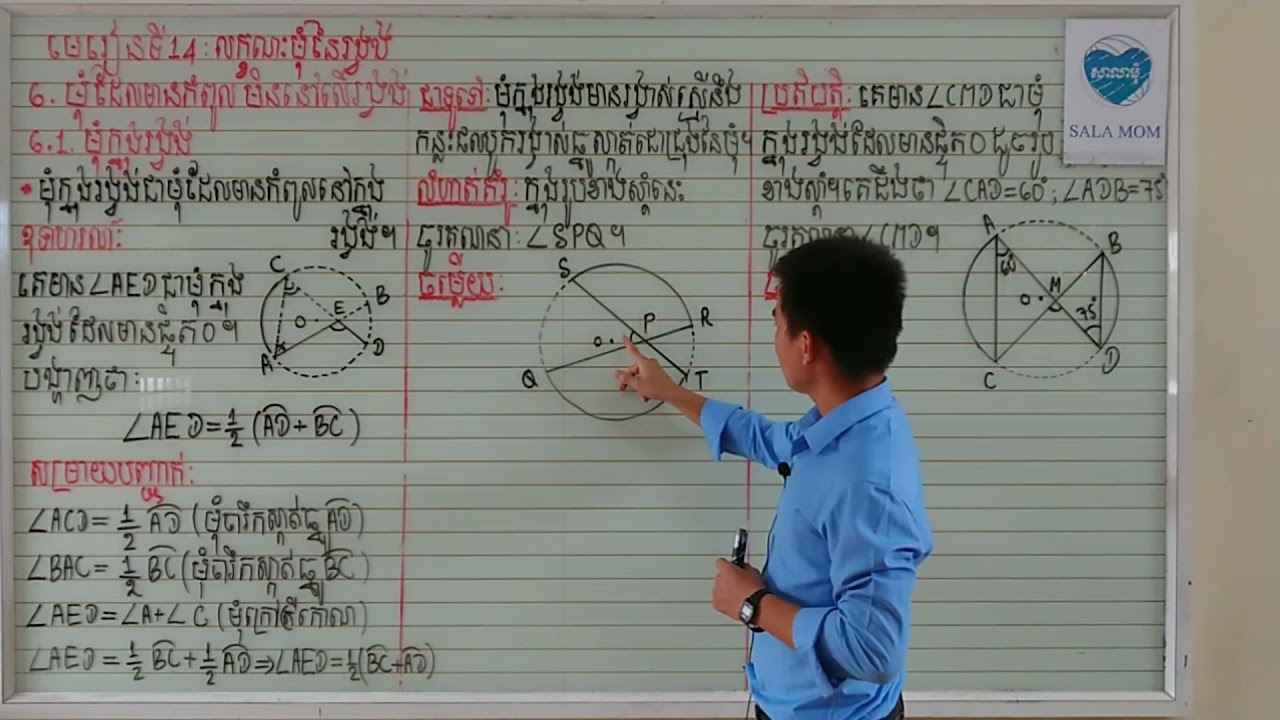 មេរៀនទី14: លក្ខណៈមុំនៃរង្វង់
6. មុំដែលមានកំពូល មិននៅលើរង្វង់
6.1. មុំក្នុងរង្វង់
• មុំក្នុងរង្វង់ជាមុំដែលមានកំពូលនៅក្នុង
រង្វង់។
ឧទាហរណ៍
គេមាន∠AEDជាមុំក្នុង
រង្វង់ដែលមានផ្ចិត O ។
បង្ហាញថា:
∠AED = 1/2 (AD + BC)
សម្រាយបញ្ជាក់:
∠ACD = 1/2 AD (មុំចារឹកស្កាត់ធ្នូ AD)
∠BAC = 1/2 BC (មុំចារឹកស្កាត់ធ្នូ BC)
∠AED = ∠A+∠C (មុំក្រៅត្រីកោណ)
∠AED = 1/2 BC + 1/2 AD ⇒ ∠AED = 1/2 (BC+AD)
C
B
E
O
A
D
ជាទូទៅ: មុំក្នុងរង្វង់មានរង្វាស់ស្មើនឹង
កន្លះផលបូករង្វាស់ធ្នូស្កាត់ដោយជ្រុងនៃមុំ។
លំហាត់គំរូ: ក្នុងរូបខាងស្តាំនេះ
ចូរគណនា: ∠SPQ។
ចម្លើយ:
S
P
R
O
Q
T
ប្រតិបត្តិ: គេមាន ∠CMD ជាមុំ
ក្នុងរង្វង់ដែលមានផ្ចិត O ដូចរូប
ខាងស្តាំ។គេដឹងថា ∠CAD=60°; ∠ADB=75°
ចូរគណនា ∠CMD។
A
B
60°
M
O
75°
C
D
សាលាមុំ
SALA MOM